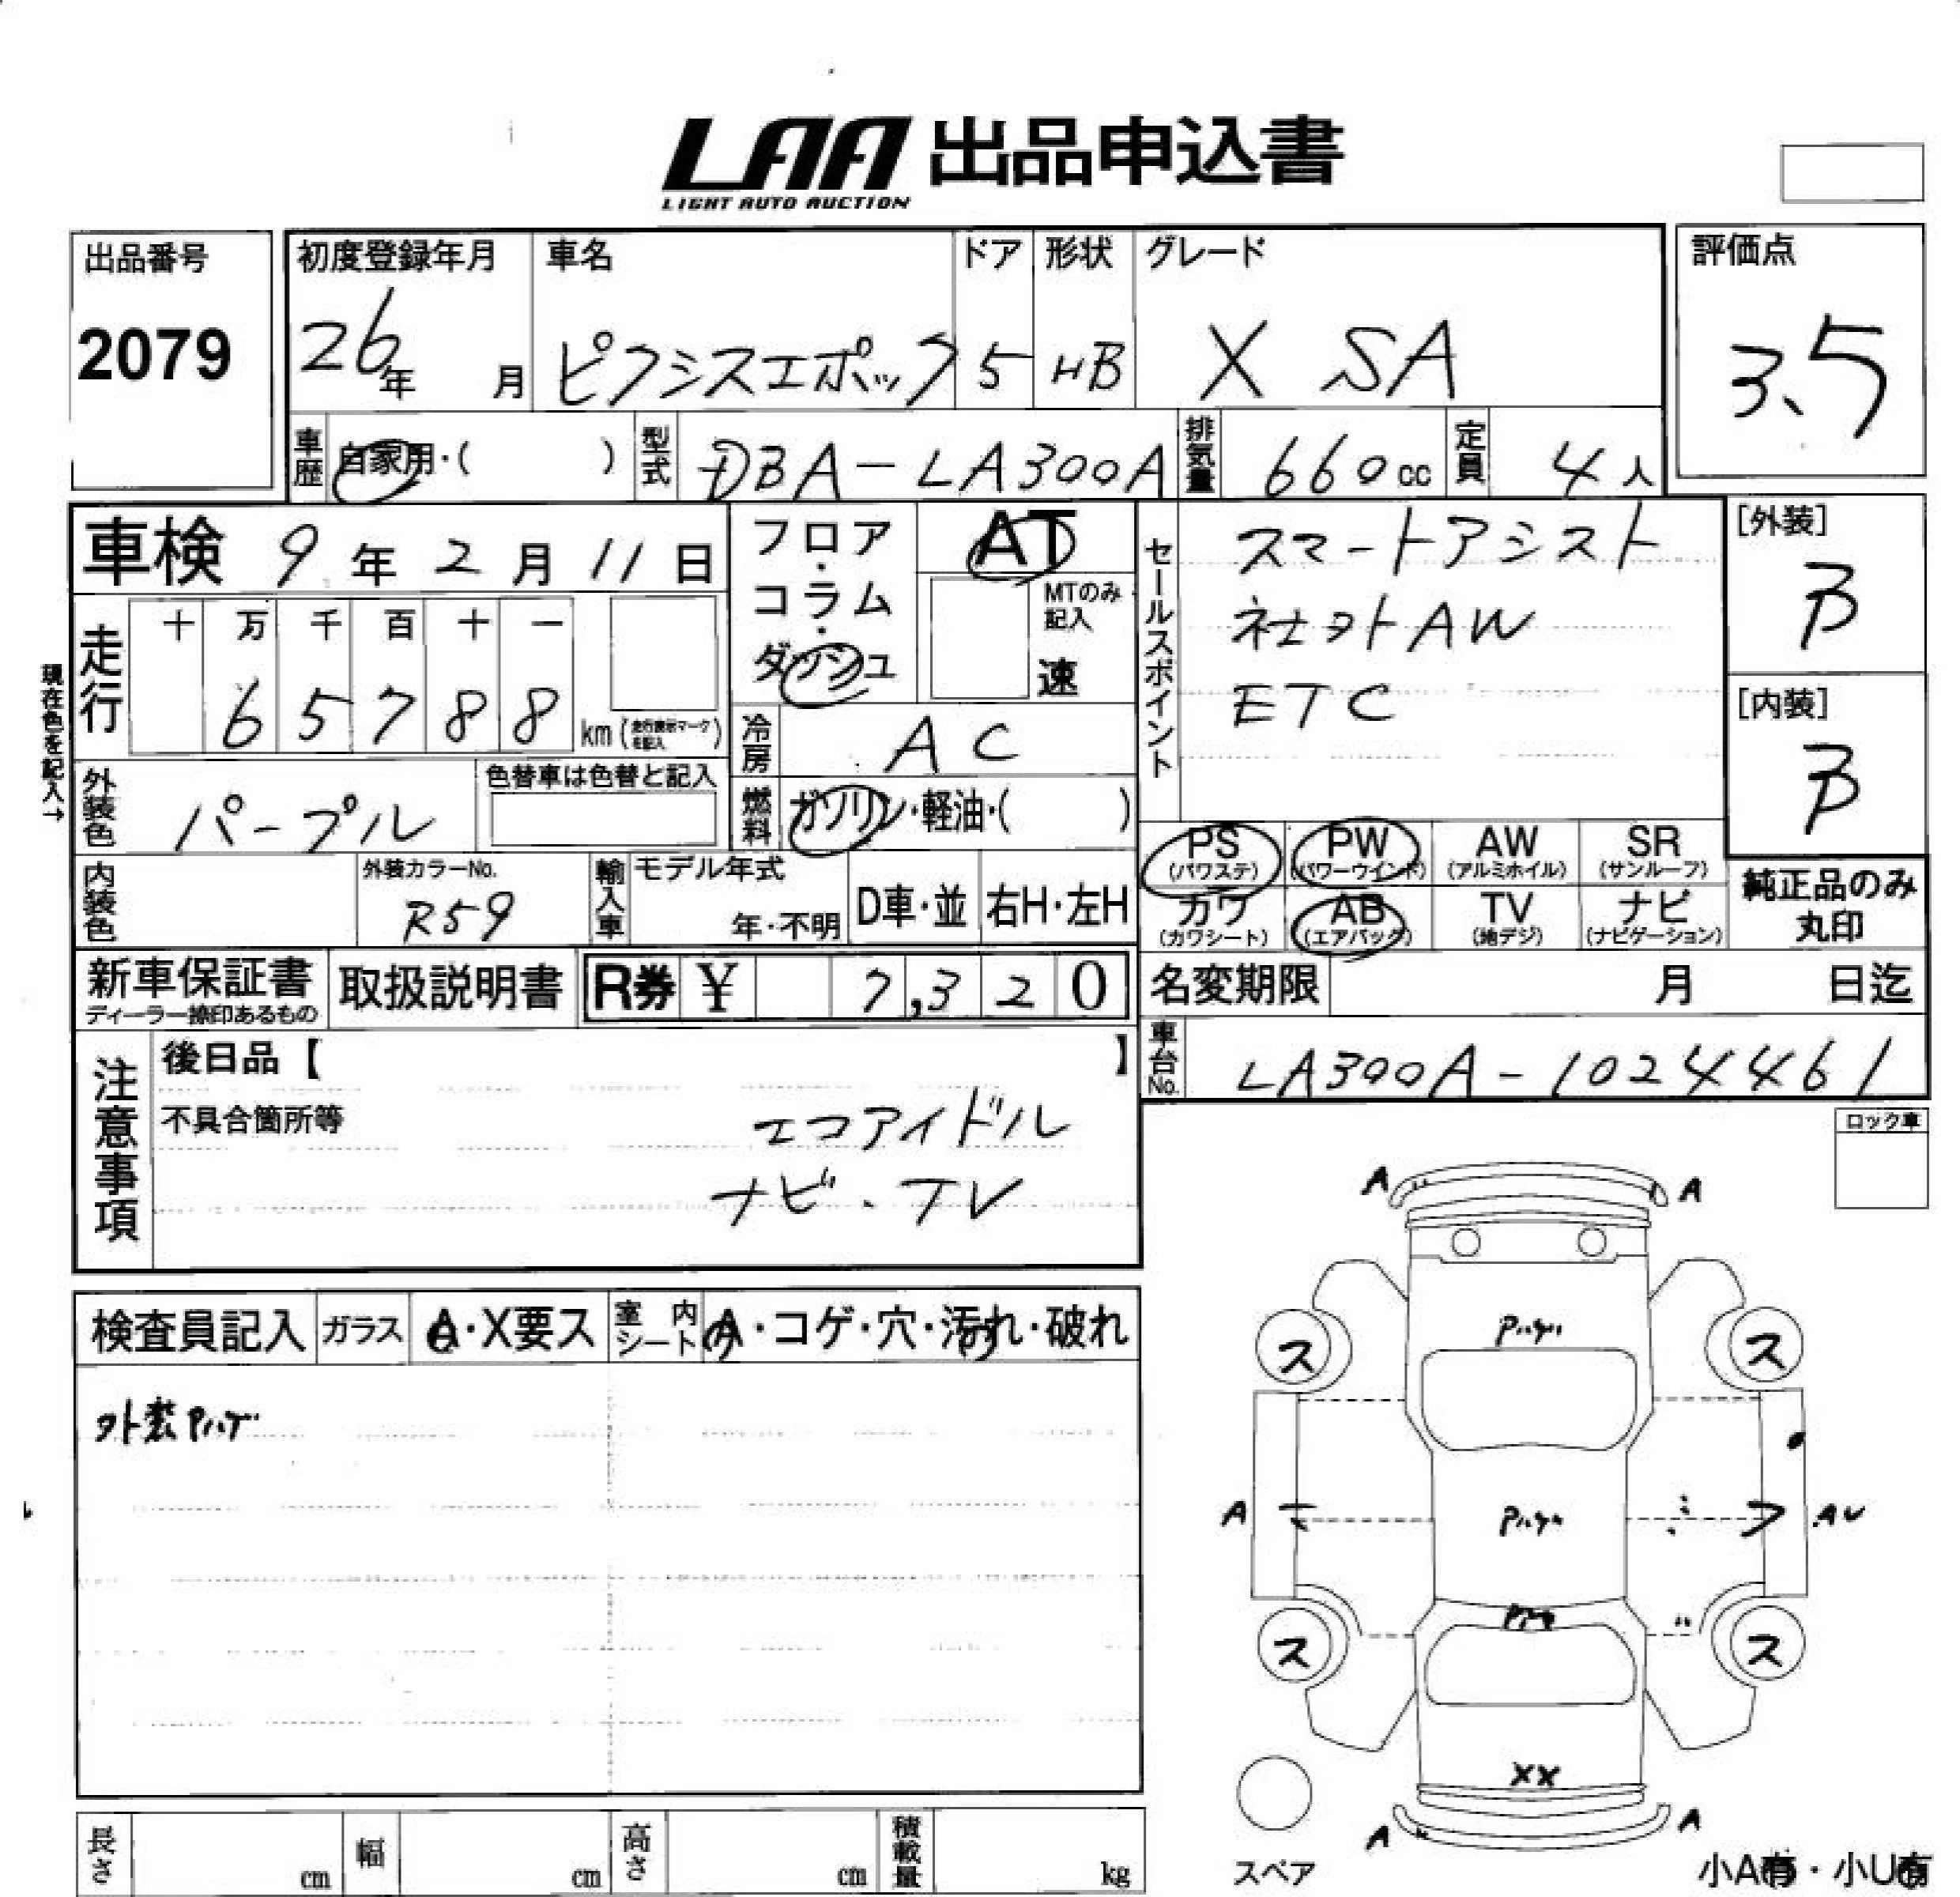 LAA 出品申込書
LIGHT AUTO AUCTION
出品番号
2079
初度登録年月
26年 月
車名
ピクシスエポック
ドア
5
形状
HB
グレード
X SA
評価点
3.5
車歴
自家用・( )
型式
DBA-LA300A
排気量
660cc
定員
4人
車検 9年 2月 11日
フロア・コラム・ダッシュ
AT
MTのみ記入
速
セールスポイント
スマートアシスト
社外AW
ETC
[外装]
B
[内装]
B
現在色を記入→
走行
十 万 千 百 十 一
6 5 7 8 8
km (走行表示マークを記入)
冷房
AC
外装色
パープル
色替車は色替と記入
燃料
ガソリン・軽油・( )
PS (パワステ)
PW (パワーウインド)
AW (アルミホイル)
SR (サンルーフ)
カワ (カワシート)
AB (エアバッグ)
TV (地デジ)
ナビ (ナビゲーション)
純正品のみ丸印
内装色
外装カラーNo.
R59
輸入車
モデル年式
年・不明
D車・並
右H・左H
新車保証書
ディーラー捺印あるもの
取扱説明書
R券 ¥ 7,320
名変期限 月 日迄
車台No.
LA300A-1024461
注意事項
後日品【 】
不具合箇所等
エコアイドル
ナビ・TV
ロック車
検査員記入
ガラス
A・X要ス
室内シート
A・コゲ・穴・汚れ・破れ
外装Pハゲ
A A
Pハゲ
ス ス
A Pハゲ AU
ス ス
XX
A A
スペア
小A有・小U有
長さ cm
幅 cm
高さ cm
積載量 kg